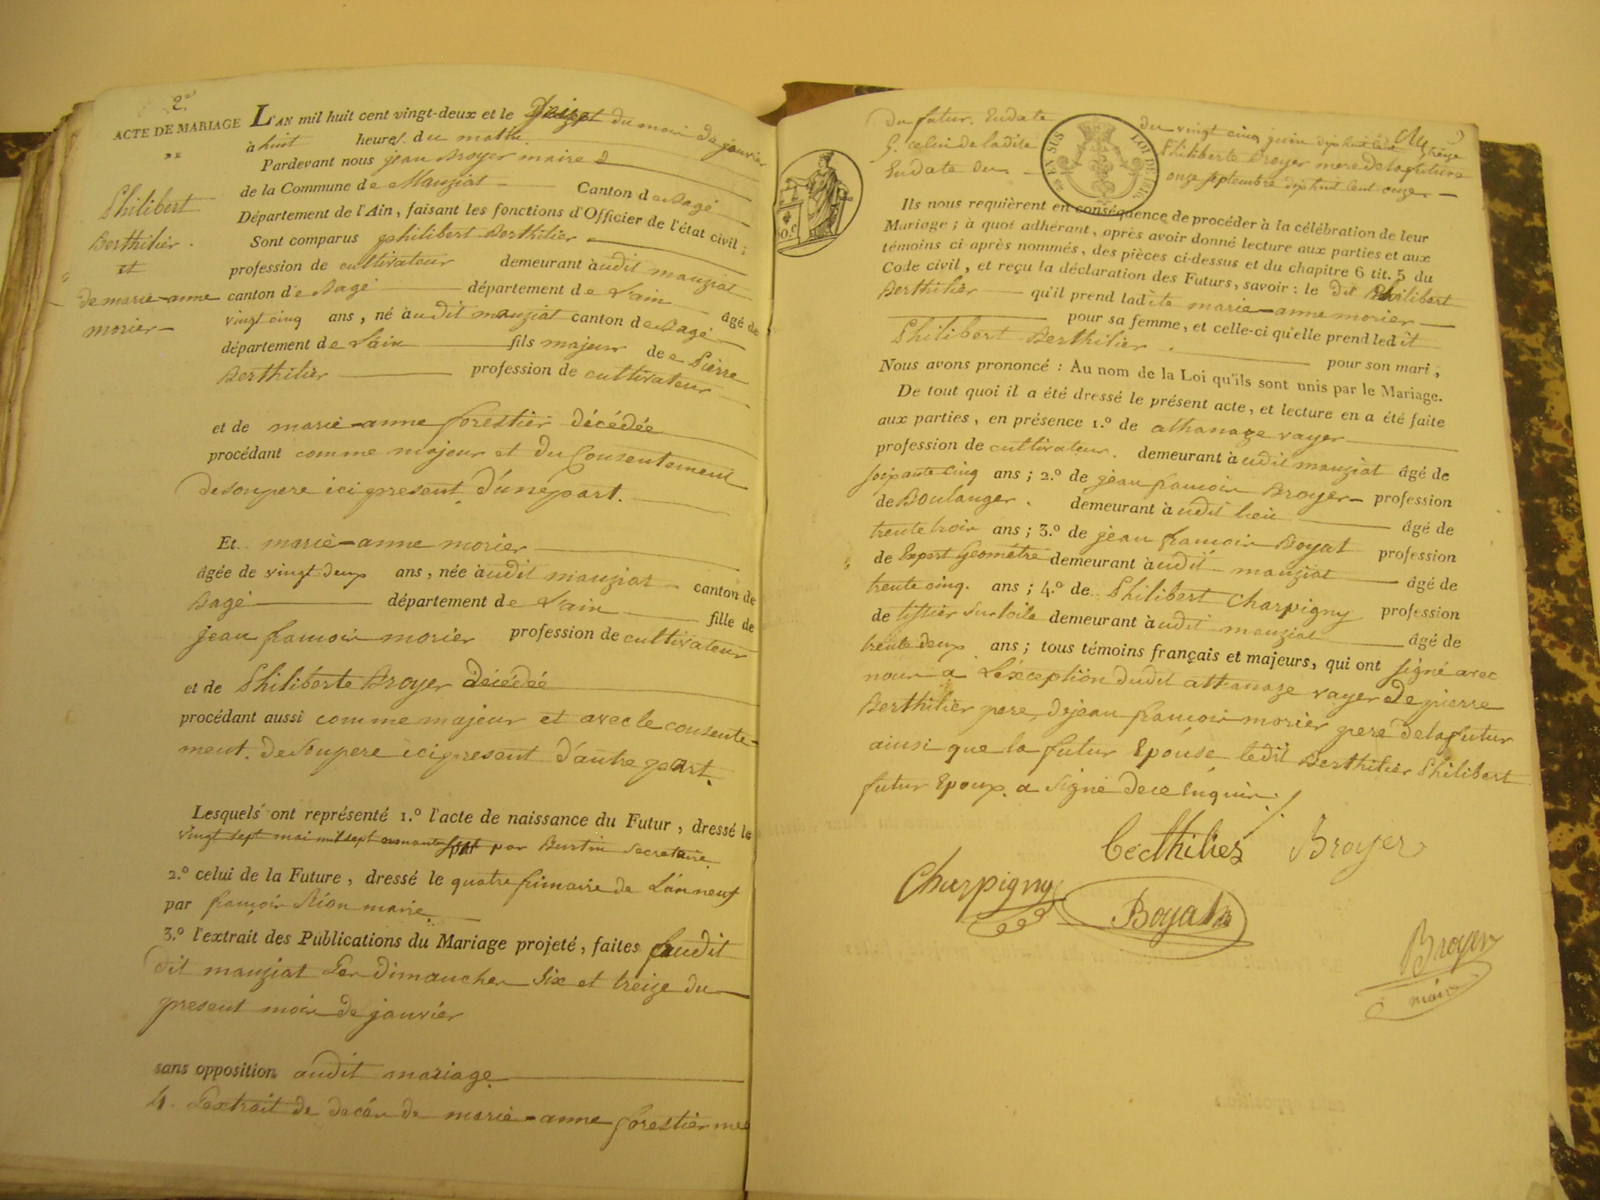 2e
ACTE DE MARIAGE
Philibert
Berthilier.
et
de marie-anne
morier
L'AN mil huit cent vingt-deux et le du mois de janvier
à huit heures du matin
Pardevant nous jean Broyer maire
de la Commune de Manziat Canton de Bagé
Département de l'Ain, faisant les fonctions d'Officier de l'état civil;
Sont comparus philibert Berthilier
profession de cultivateur demeurant audit manziat
canton de Bagé département de L'ain âgé de
vingt cinq ans, né audit manziat canton de Bagé
département de L'ain fils majeur de Pierre
Berthilier profession de cultivateur
et de marie-anne forestier décédée
procédant comme majeur et du Consentement
de son pere ici present d'une part.
Et marie-anne morier
âgée de vingt deux ans, née audit manziat canton de
Bagé département de L'ain fille de
jean francois morier profession de cultivateur
et de Philiberte Broyer décédée
procédant aussi comme majeur et avec le consente-
ment de son pere ici present d'autre part.
Lesquels ont représenté 1.° l'acte de naissance du Futur, dressé le
vingt sept mai mil sept par secretaire
2.° celui de la Future, dressé le quatre frimaire de L'an neuf
par francois maire
3.° l'extrait des Publications du Mariage projeté, faites audit
dit manziat Les dimanches six et treize du
present mois de janvier
sans opposition audit mariage
4. L'extrait de decès de marie-anne forestier
du futur. En date du vingt cinq juin dix huit cent treize
5. celui de ladite Philiberte Broyer mere de la future
En date du onze septembre dix huit cent onze
Ils nous requièrent en conséquence de procéder à la célébration de leur
Mariage; à quoi adhérant, après avoir donné lecture aux parties et aux
témoins ci après nommés, des pièces ci-dessus et du chapitre 6 tit. 5 du
Code civil, et reçu la déclaration des Futurs, savoir: le dit Philibert
Berthilier qu'il prend ladite marie-anne morier
pour sa femme, et celle-ci qu'elle prend ledit
Philibert Berthilier. pour son mari,
Nous avons prononcé: Au nom de la Loi qu'ils sont unis par le Mariage.
De tout quoi il a été dressé le présent acte, et lecture en a été faite
aux parties, en présence 1.° de athanaze vayer
profession de cultivateur. demeurant audit manziat âgé de
soixante cinq ans; 2.° de jean francois Broyer profession
de Boulanger. demeurant audit lieu âgé de
trente trois ans; 3.° de jean francois Boyat profession
de Expert Géometre demeurant audit manziat âgé de
trente cinq. ans; 4.° de Philibert Charpigny profession
de tissier sur toile demeurant audit manziat âgé de
trente deux ans; tous témoins français et majeurs, qui ont signé avec
nous a L'exception dudit athanaze vayer de pierre
Berthilier pere, de jean francois morier pere de la futur
ainsi que la futur Epouse ledit Berthilier Philibert
futur Epoux a signé de ce Enquis.
Berthilier Broyer
Charpigny Boyat
Broyer
maire